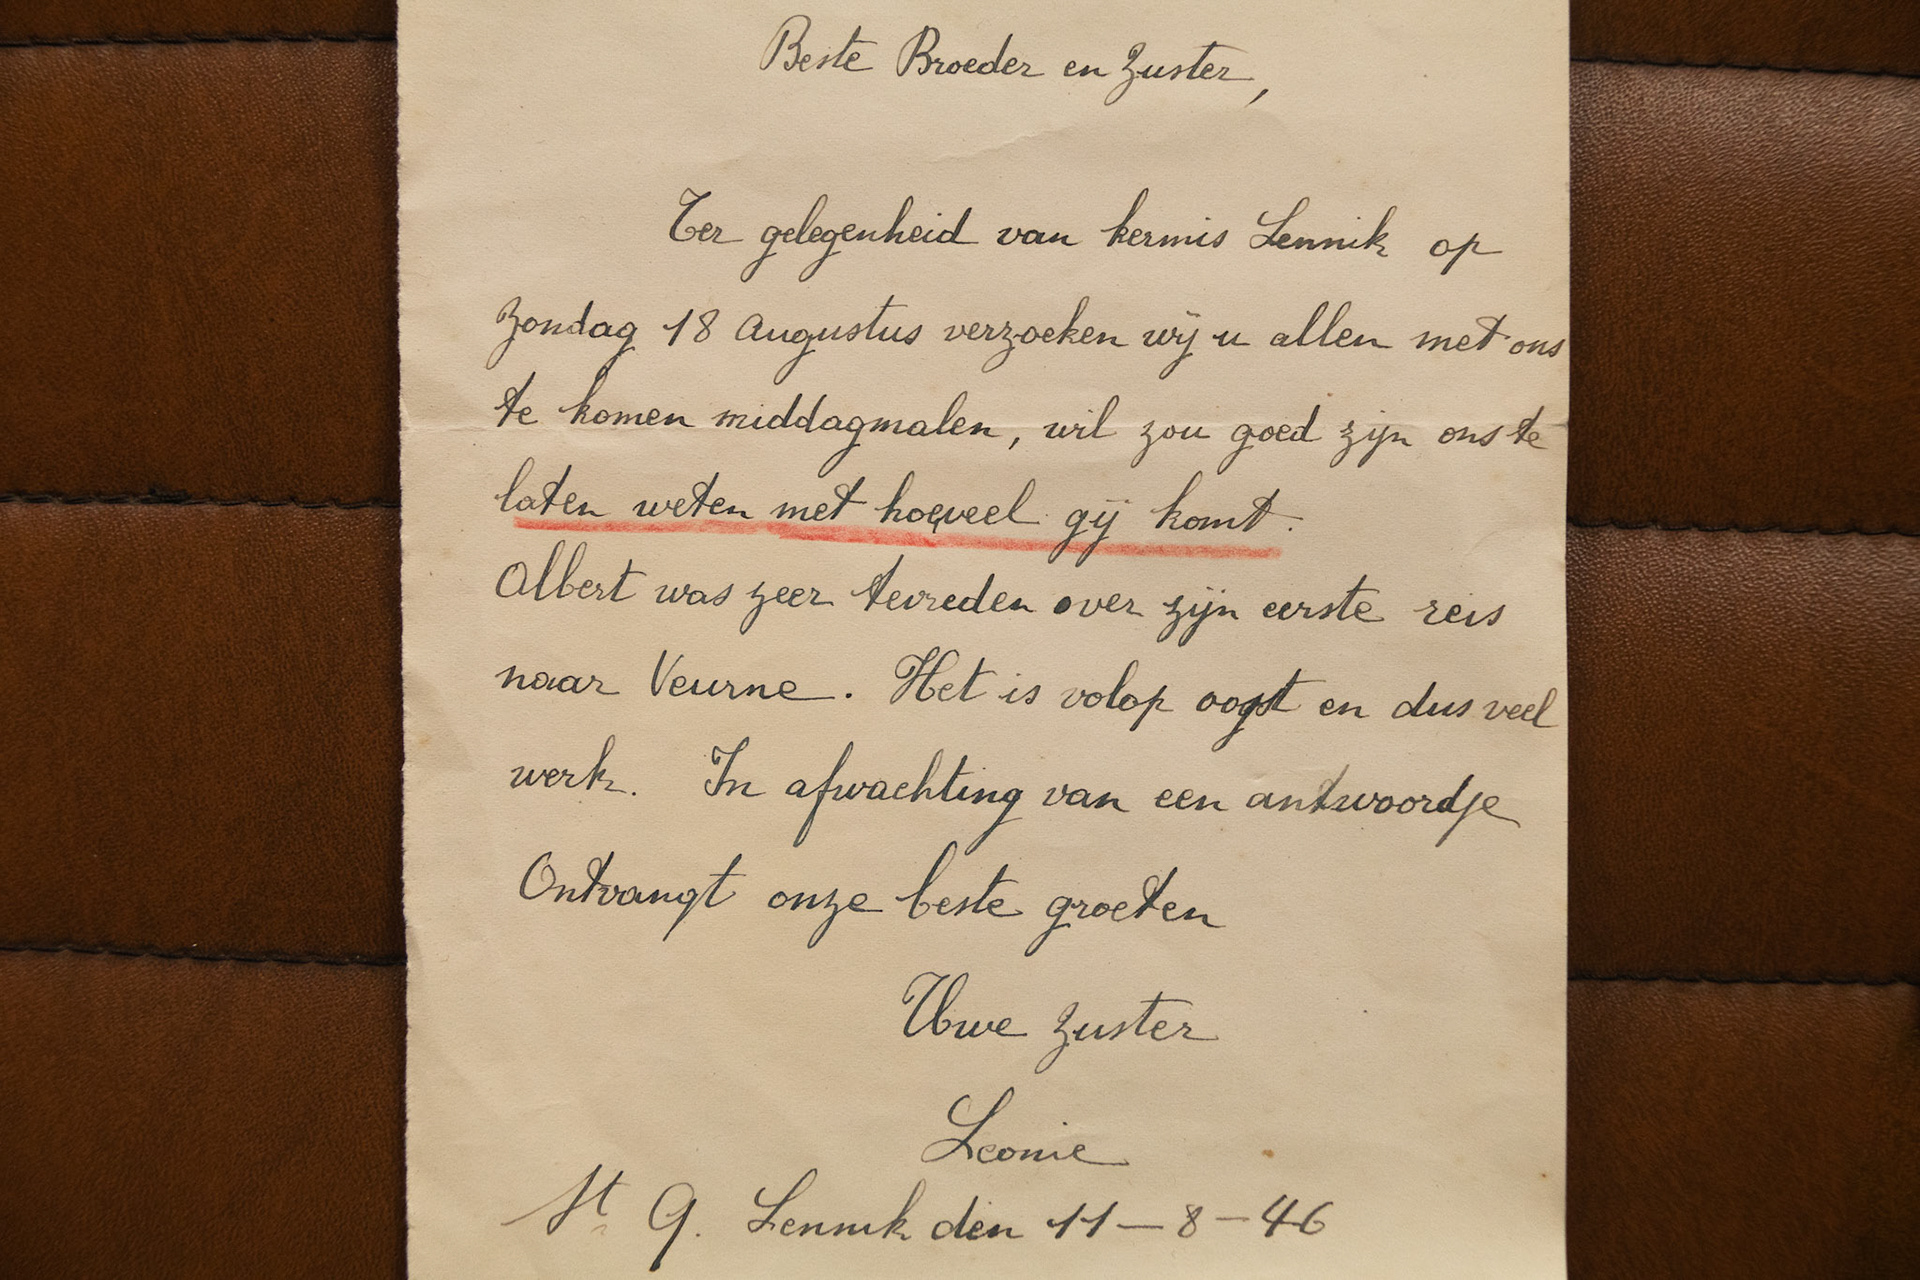 Beste Broeder en Zuster,
Ter gelegenheid van kermis Lennik op
Zondag 18 Augustus verzoeken wij u allen met ons
te komen middagmalen, wil zou goed zijn ons te
laten weten met hoeveel gij komt.
Albert was zeer tevreden over zijn eerste reis
naar Veurne. Het is volop oogst en dus veel
werk. In afwachting van een antwoordje
Ontvangt onze beste groeten
Uwe Zuster
Leonie
St Q. Lennik den 11-8-46